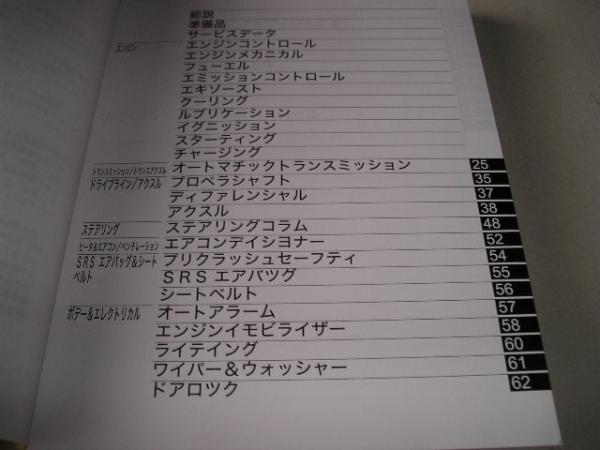 総説
準備品
サービスデータ
エンジン エンジンコントロール
エンジンメカニカル
フューエル
エミッションコントロール
エキゾースト
クーリング
ルブリケーション
イグニッション
スターティング
チャージング
トランスミッション/トランスアクスル オートマチックトランスミッション 25
ドライブライン/アクスル プロペラシャフト 35
ディファレンシャル 37
アクスル 38
ステアリング ステアリングコラム 48
ヒータ&エアコン/ベンチレーション エアコンデイシヨナー 52
SRS エアバッグ&シートベルト プリクラッシュセーフティ 54
SRS エアバツグ 55
シートベルト 56
ボデー&エレクトリカル オートアラーム 57
エンジンイモビライザー 58
ライテイング 60
ワイパー&ウォッシャー 61
ドアロツク 62